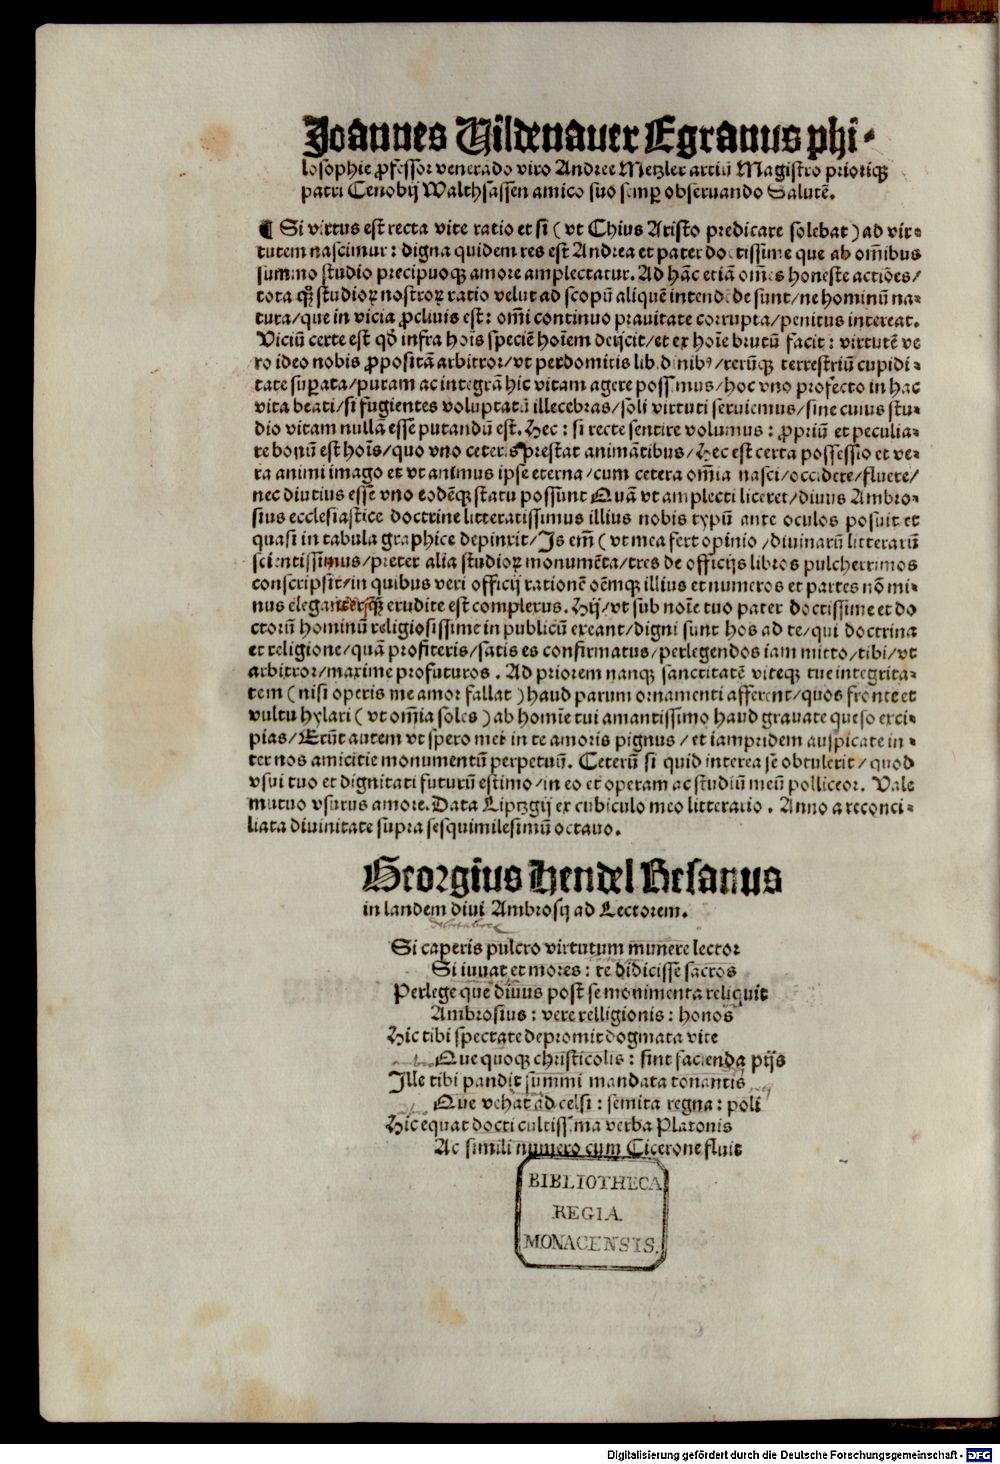 Joannes Uildenauer Egranus phi-
losophie ꝓfessor venerādo viro Andree Metzler artiū Magistro prioriqꝫ
patri Cenobij Walthsassen amico suo semꝑ obseruando Salutē.
¶ Si virtus est recta vite ratio et si ( vt Chius Aristo predicare solebat ) ad vir-
tutem nascimur : digna quidem res est Andrea et pater doctissime que ab om̄ibus
summo studio precipuoqꝫ amore amplectatur. Ad hāc etiā om̄es honeste actiōes/
tota qꝫ studioꝝ nostroꝝ ratio velut ad scopū aliquē intendēde sunt/ne hominū na-
tura/que in vicia ꝓcliuis est : om̄i continuo prauitate corrupta/penitus intereat.
Viciū certe est qđ infra hoīs speciē hoīem deijcit/et ex hoīe brutū facit : virtutē ve
ro ideo nobis ꝓpositā arbitror/vt perdomitis libidinibꝰ/rerūqꝫ terrestriū cupidi-
tate suꝑata/puram ac integrā hic vitam agere possimus/hoc vno profecto in hac
vita beati/si fugientes voluptatū illecebras/soli virtuti seruiemus/sine cuius stu-
dio vitam nullā esse putandū est. Hec : si recte sentire volumus : ꝓpriū et peculia-
re bonū est hoīs/quo vno ceteris prestat animātibus/Hec est certa possessio et ve-
ra animi imago et vt animus ipse eterna/cum cetera om̄ia nasci/occidere/fluere/
nec diutius esse vno eodēqꝫ statu possunt Quā vt amplecti liceret/diuus Ambro-
sius ecclesiastice doctrine litteratissimus illius nobis typū ante oculos posuit et
quasi in tabula graphice depinxit/Is em̄ ( vt mea fert opinio /diuinarū litterarū
scientissimus/preter alia studioꝝ monumēta/tres de officijs libros pulcherrimos
conscripsit/in quibus veri officij rationē oēmqꝫ illius et numeros et partes nō mi-
nus eleganter qꝫ erudite est complexus. Hij/vt sub noīe tuo pater doctissime et do
ctorū hominū religiosissime in publicū exeant/digni sunt hos ad te/qui doctrina
et religione/quā profiteris/satis es confirmatus/perlegendos iam mitto/tibi/vt
arbitror/maxime profuturos . Ad priorem nanqꝫ sanctitatē viteqꝫ tue integrita-
tem ( nisi operis me amor fallat ) haud parum ornamenti afferent/quos fronte et
vultu hylari ( vt om̄ia soles ) ab homīe tui amantissimo haud grauate queso exci-
pias/Erūt autem vt spero mei in te amoris pignus / et iampridem auspicate in -
ter nos amicitie monumentū perpetuū. Ceterū si quid interea se obtulerit/quod
vsui tuo et dignitati futurū estimo/in eo et operam ac studiū meū polliceor. Vale
mutuo vsurus amore. Data Liptzgij ex cubiculo meo litterario . Anno a reconci-
liata diuinitate supra sesquimilesimū octauo.
Georgius Hendel Besanus
in laudem diui Ambrosij ad Lectorem.
Si caperis pulcro virtutum munere lector
Si iuuat et mores : te didicisse sacros
Perlege que diuus post se monimenta reliquit
Ambrosius : vere relligionis : honos
Hic tibi spectate depromit dogmata vite
Que quoqꝫ christicolis : sint facienda pijs
Ille tibi pandit summi mandata tonantis
Que vehat ad celsi : semita regna : poli
Hic equat docti cultissima verba Platonis
Ac simili numero cum Cicerone fluit
BIBLIOTHECA
REGIA
MONACENSIS.
Digitalisierung gefördert durch die Deutsche Forschungsgemeinschaft - DFG